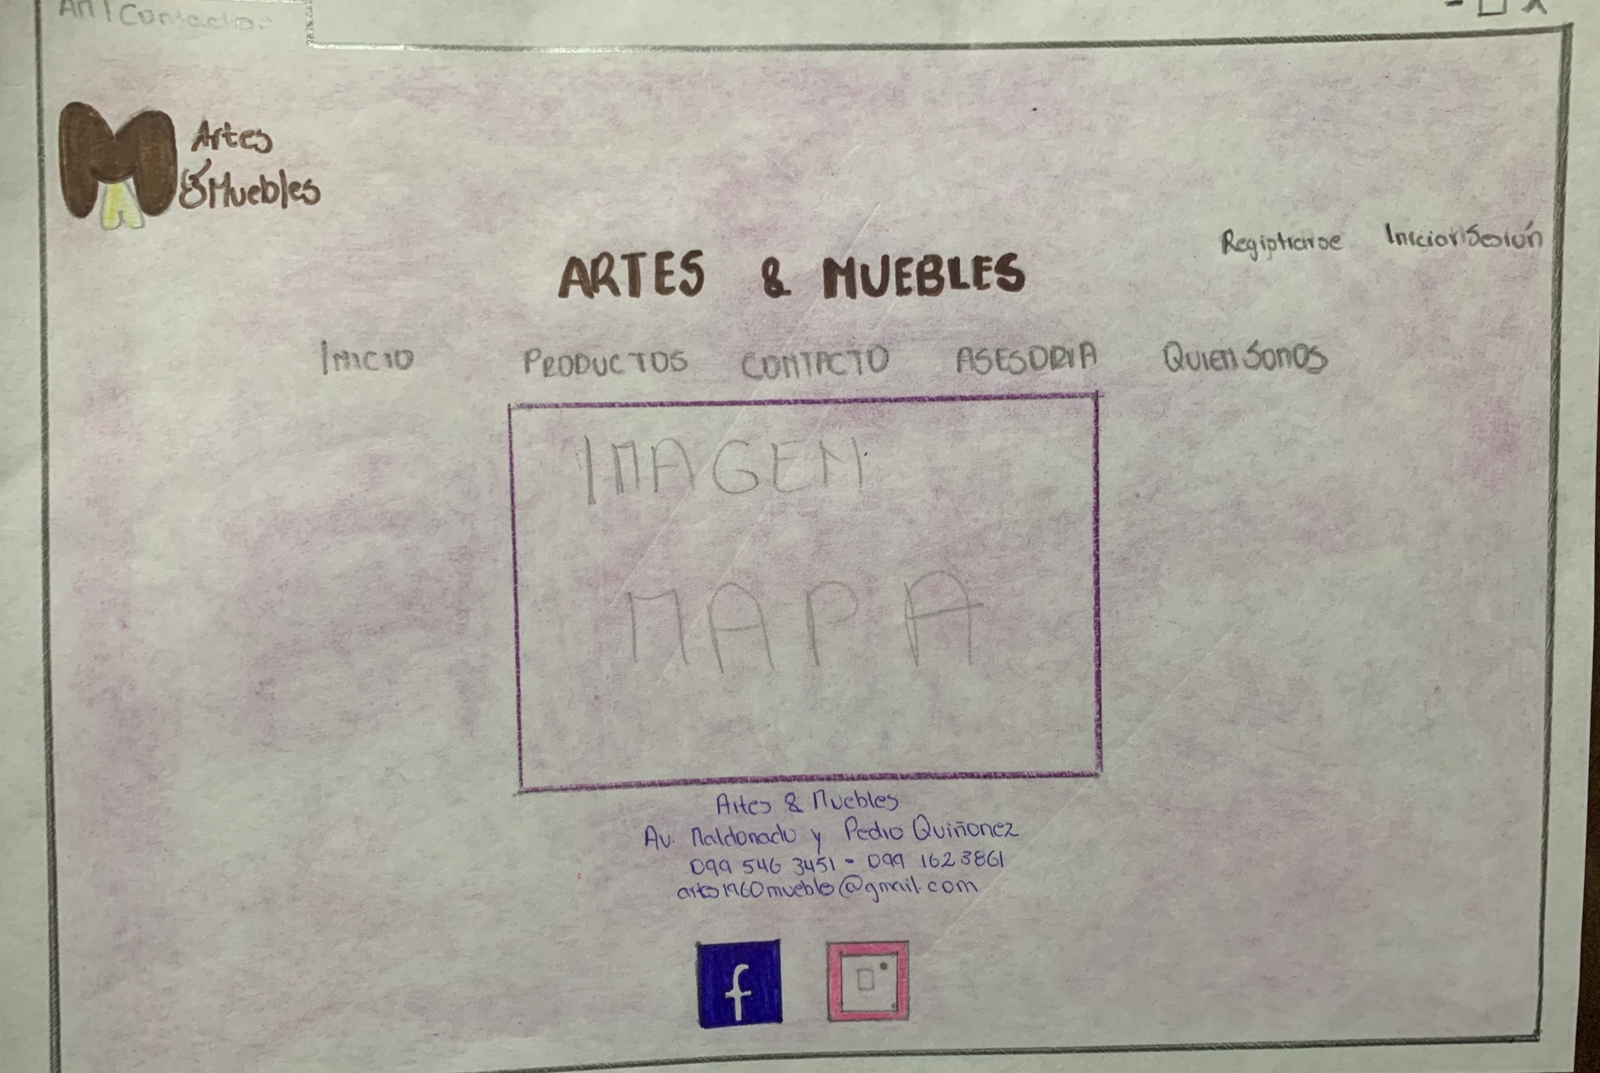 AM | Contactos
Artes
& Muebles
Registrarse Iniciar Sesión
ARTES & MUEBLES
INICIO PRODUCTOS CONTACTO ASESORIA Quien Somos
IMAGEN
MAPA
Artes & Muebles
Av. Maldonado y Pedro Quiñonez
099 546 3451 - 099 162 3861
artes1960mueble@gmail.com
f